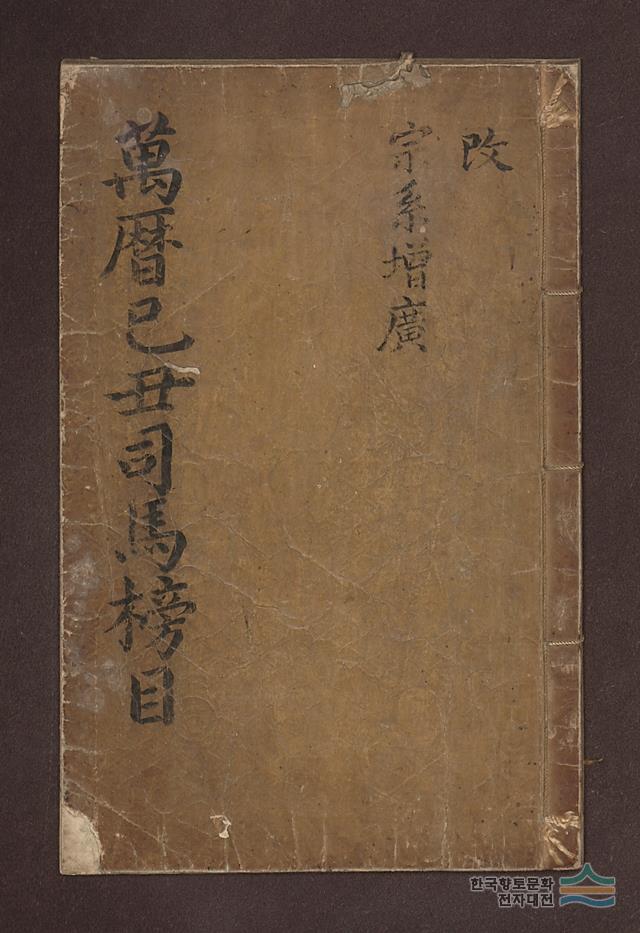 改
宗系增廣
萬曆己丑司馬榜目
한국향토문화
전자대전